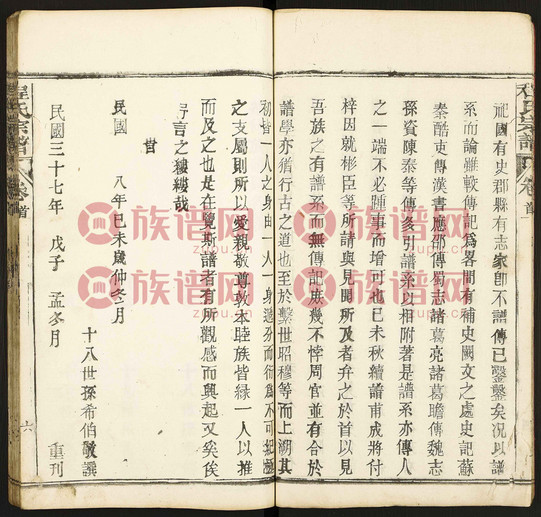 祉國有史郡縣有志家卽不譜傳已鑿鑿矣況以譜
系而論雖較傳記爲畧間有補史闕文之處史記蘇
秦酷吏傳漢書應邵傳蜀志諸葛亮諸葛瞻傳魏志
孫資陳泰等傳多引譜系以相附著是譜系亦傳人
之一端不必踵事而增可也已未秋續譜甫成將付
梓因耿彬臣等所請與見聞所及者弁之於首以見
吾族之有譜系而無傳記庶幾不悖周官並有合於
譜學亦猶行古之道也至於繫世昭穆等而上溯其
初皆一人之身由一人一身遞分而衍爲不可
之支屬則所以愛親敬尊敦本睦族皆緣一人以推
而及之也是在覽斯譜者有所觀感而興起又奚俟
予言之縷縷哉
旹
民國 八年已未歲仲冬月
十八世孫希伯敬譔
民國三十七年 戊子 孟冬月 重刊
程氏宗譜 卷首
六
程氏宗譜 卷首
族谱网
zupu.cn
族谱网
zupu.cn
族谱网
zupu.cn
族谱网
zupu.cn
族谱网
zupu.cn
族谱网
zupu.cn